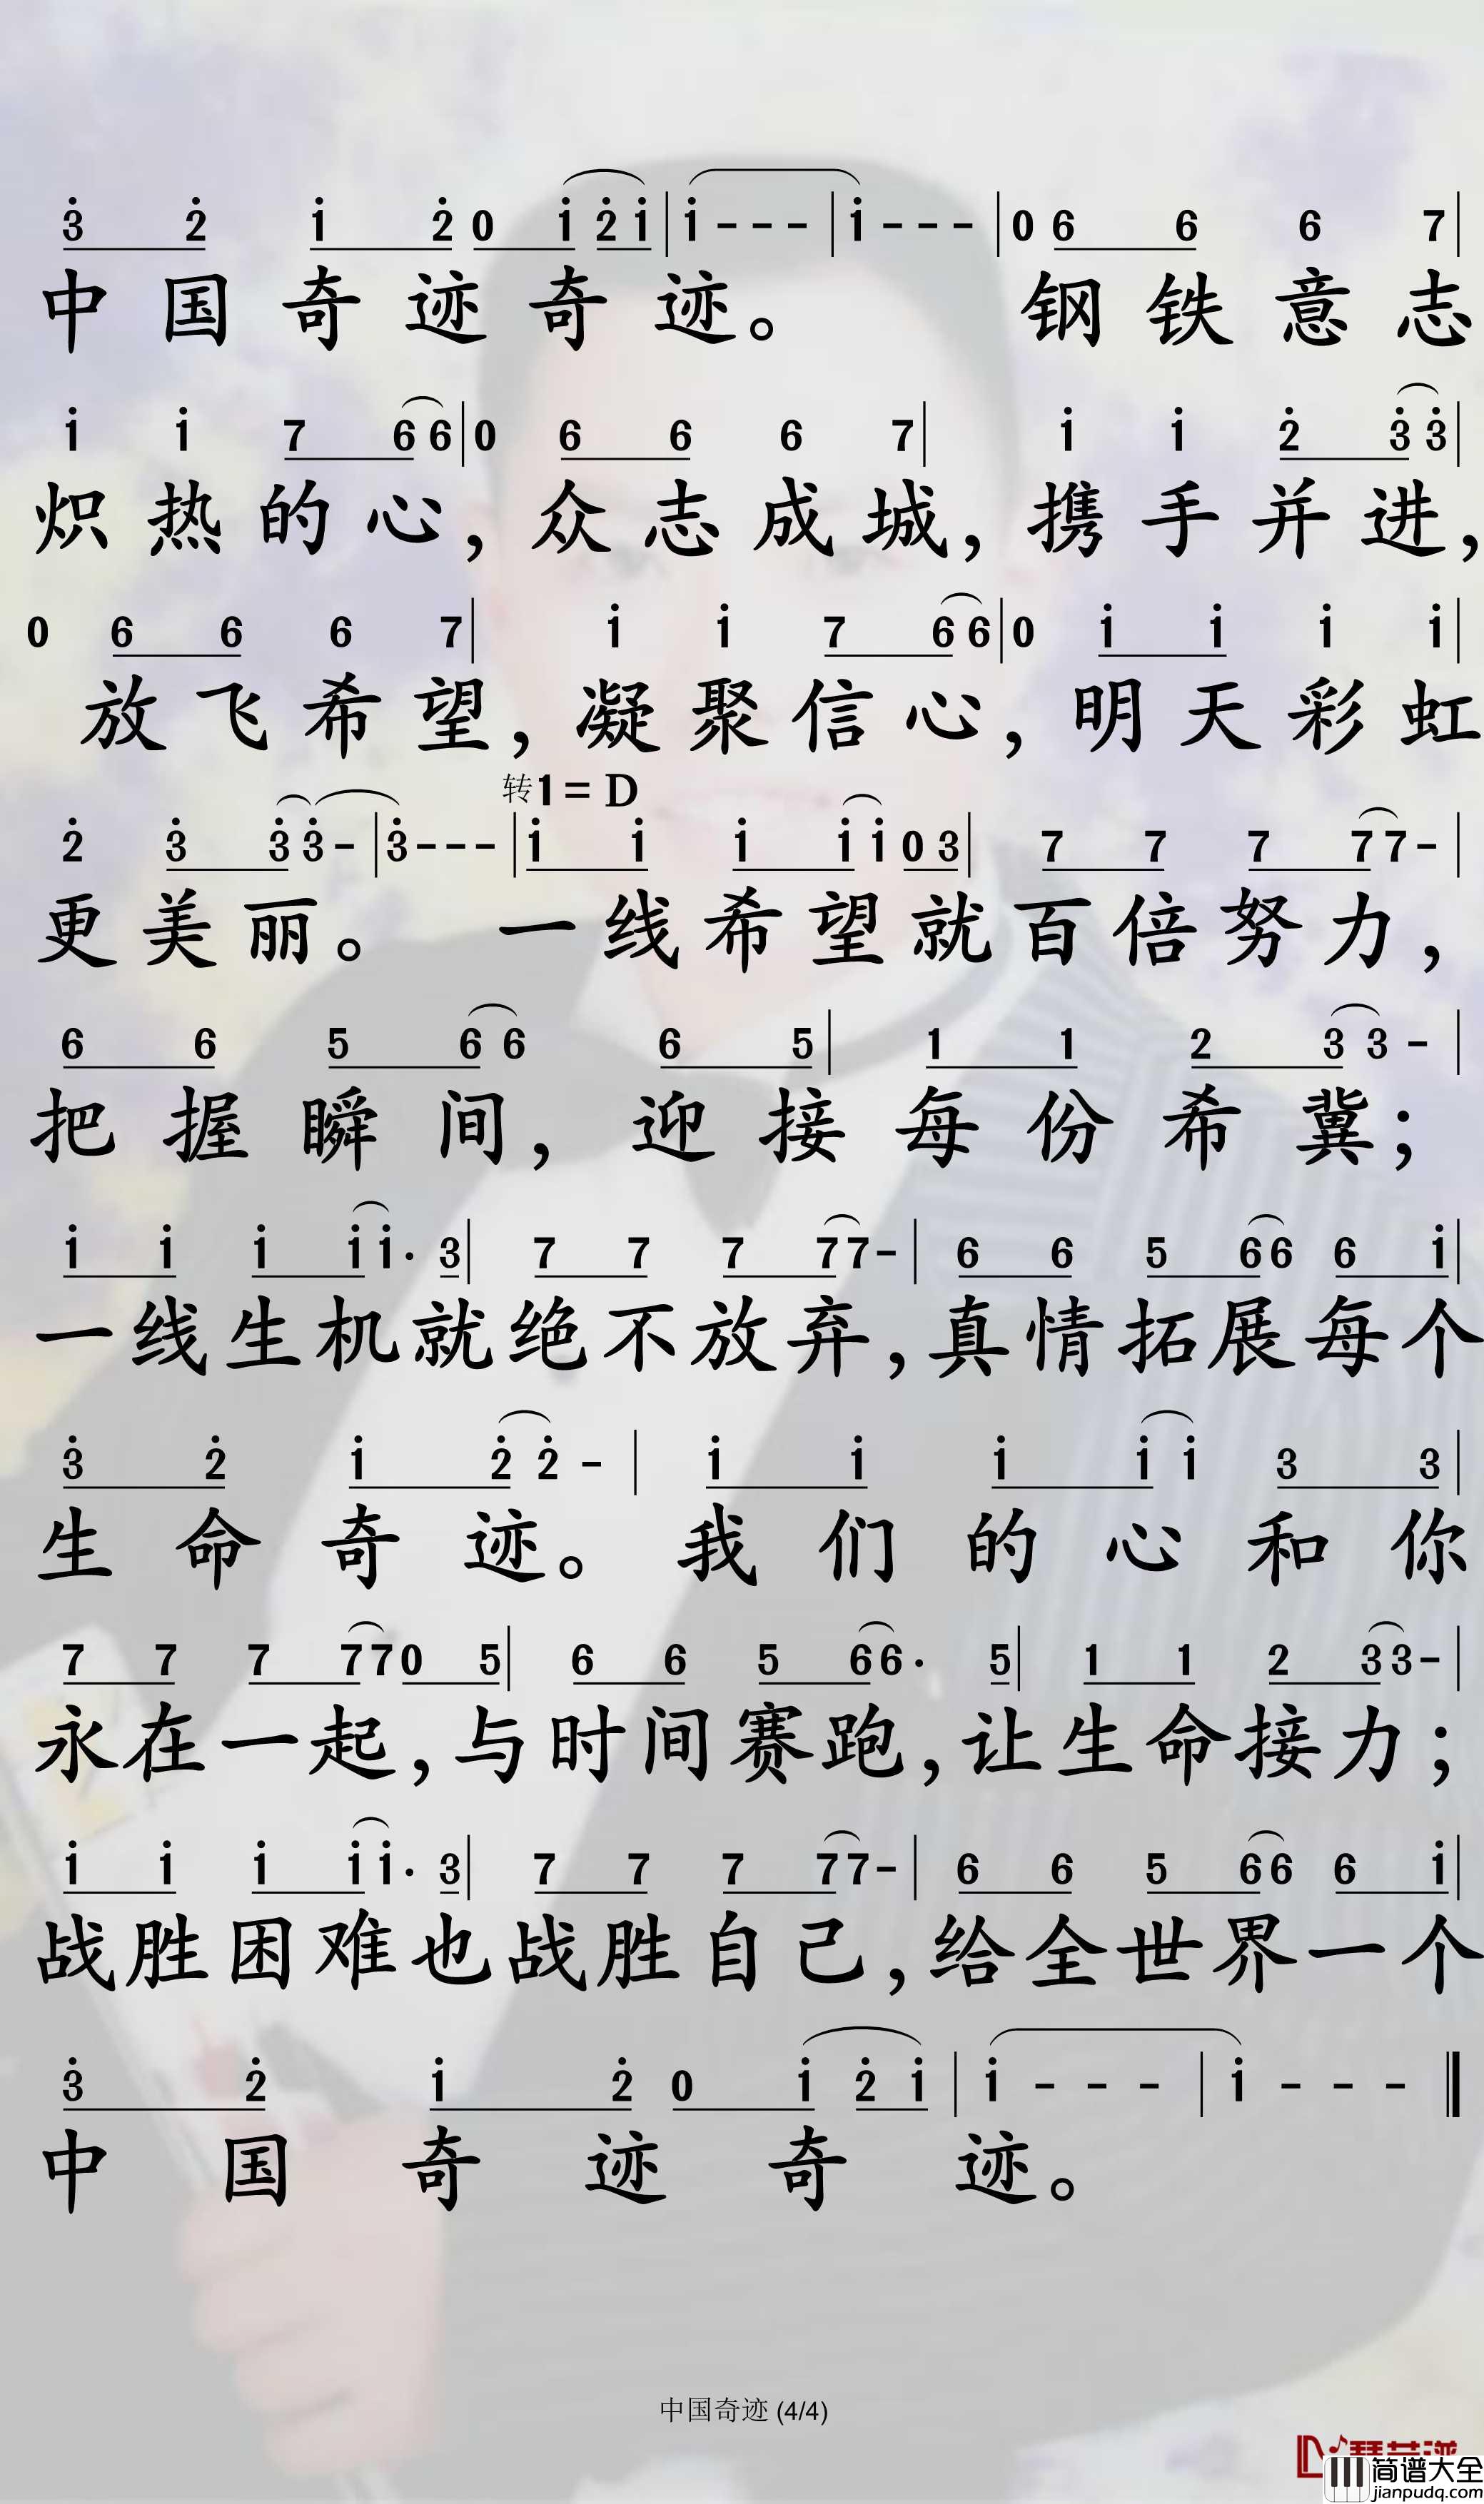 3 2 1 2 0 1 2 1 | 1 - - - | 1 - - - | 0 6 6 6 7 |
中国奇迹奇迹。 钢铁意志
1 1 7 6 6 | 0 6 6 6 7 | 1 1 2 3 3 |
炽热的心,众志成城,携手并进,
0 6 6 6 7 | 1 1 7 6 6 | 0 1 1 1 1 |
放飞希望,凝聚信心,明天彩虹
转1=D
2 3 3 3 - | 3 - - - | 1 1 1 1 1 0 3 | 7 7 7 7 7 - |
更美丽。 一线希望就百倍努力,
6 6 5 6 6 6 5 | 1 1 2 3 3 - |
把握瞬间,迎接每份希冀;
1 1 1 1 1 · 3 | 7 7 7 7 7 - | 6 6 5 6 6 6 1 |
一线生机就绝不放弃,真情拓展每个
3 2 1 2 2 - | 1 1 1 1 1 3 3 |
生命奇迹。我们的心和你
7 7 7 7 7 0 5 | 6 6 5 6 6 · 5 | 1 1 2 3 3 - |
永在一起,与时间赛跑,让生命接力;
1 1 1 1 1 · 3 | 7 7 7 7 7 - | 6 6 5 6 6 6 1 |
战胜困难也战胜自己,给全世界一个
3 2 1 2 0 1 2 1 | 1 - - - | 1 - - - |
中国奇迹奇迹。
中国奇迹 (4/4)
简谱大全
jianpudq.com